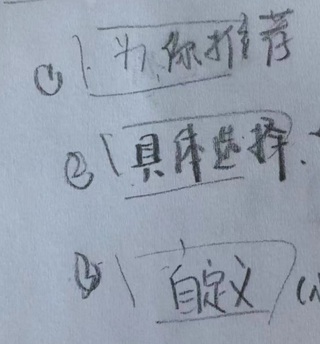 ① 为你推荐
② 具体选择
③ 自定义